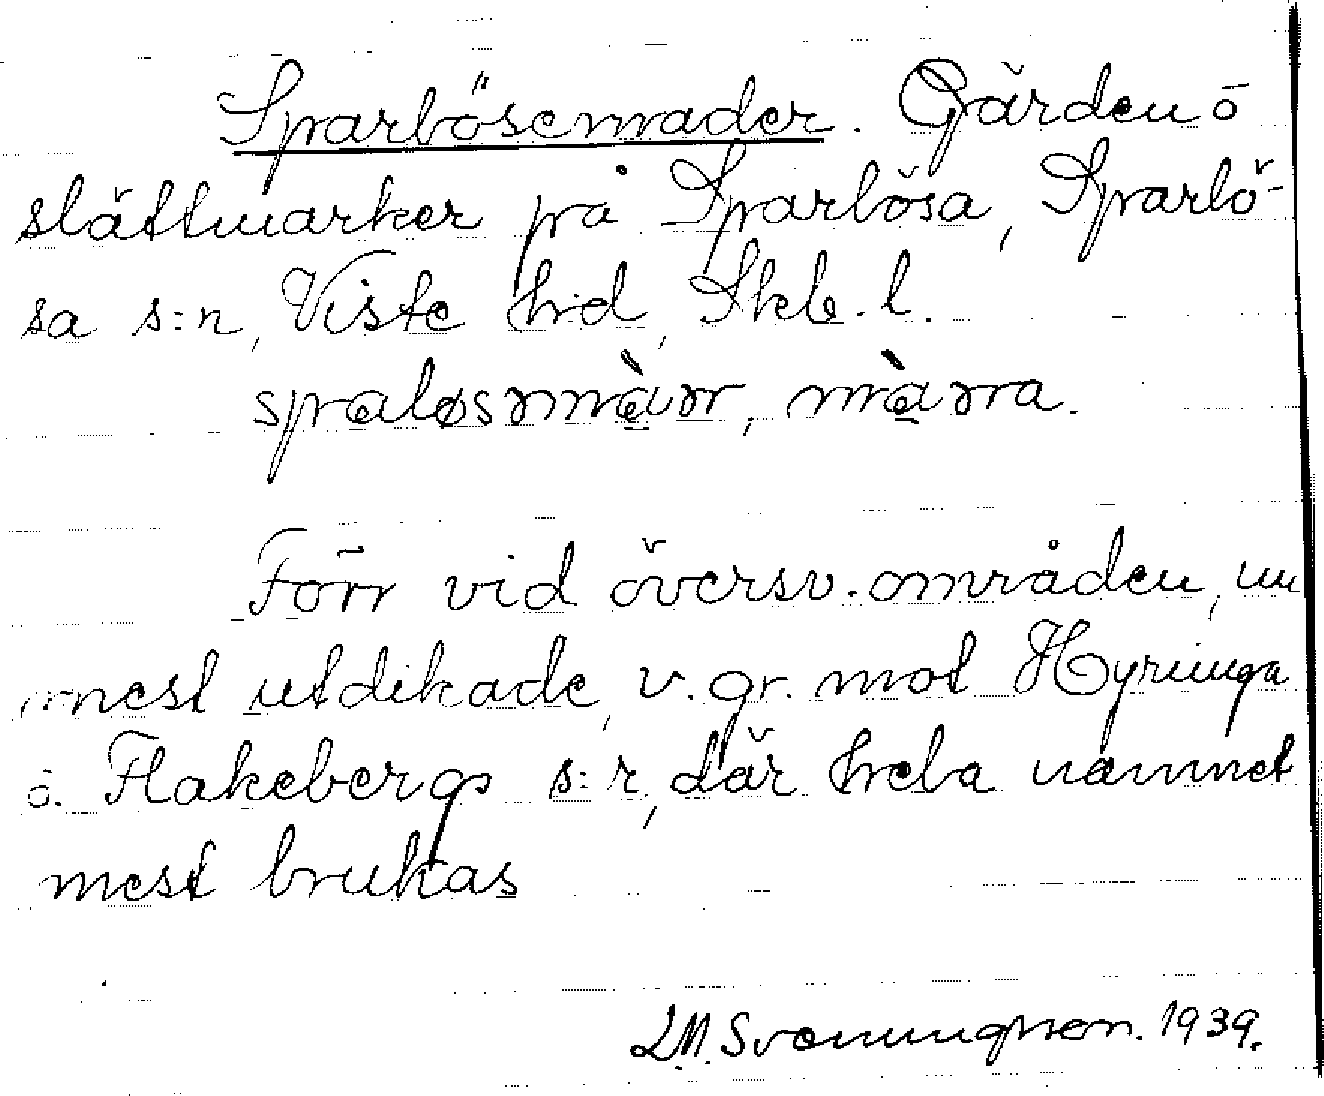 Sparlösemader. Gärden o
slättmarker på Sparlösa, Sparlö-
sa s:n, Viste hrd, Skb. l.
spaløsmàr, màra.
Förr vid översv. områden, nu
mest utdikade, v. gr. mot Hyringa
o. Flakebergs s:r, där hela namnet
mest brukas
Svenungsson. 1939.